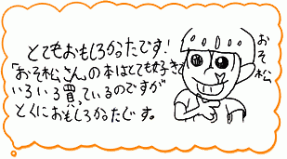 とてもおもしろかったです!
「おそ松さん」の本はとても好きで
いろいろ買っているのですが
とくにおもしろかったです。
おそ松